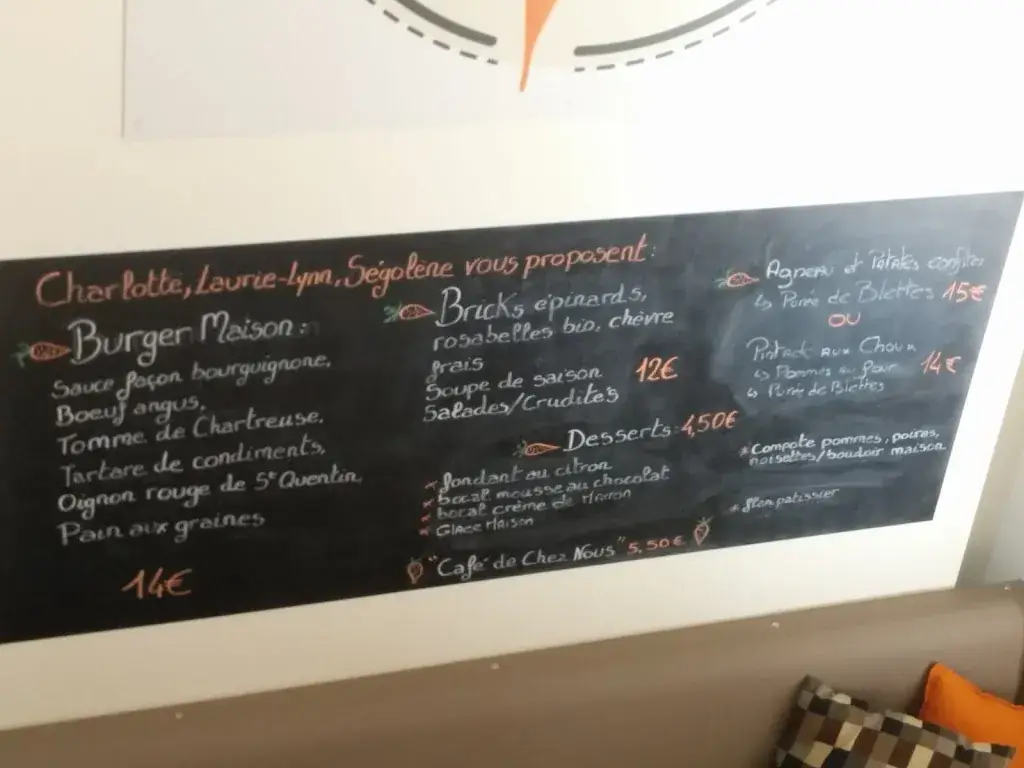 Charlotte, Laurie-Lynn, Ségolène vous proposent:
Burger Maison:
Sauce façon bourguignone,
Boeuf angus,
Tomme de Chartreuse,
Tartare de condiments,
Oignon rouge de St Quentin,
Pain aux graines
14€
Bricks épinards,
rosabelles bio, chèvre
frais
Soupe de saison 12€
Salades/Crudités
Desserts: 4,50€
x fondant au citron
x bocal mousse au chocolat
x bocal crème de Marron
x Glace Maison
"Café de Chez Nous" 5,50€
Agneau et Patates confites
↳ Purée de Blettes 15€
OU
Pintade aux Choux
↳ Pommes au four 14€
↳ Purée de Blettes
x Compote pommes, poires,
noisettes/boudoir maison
x flan patissier